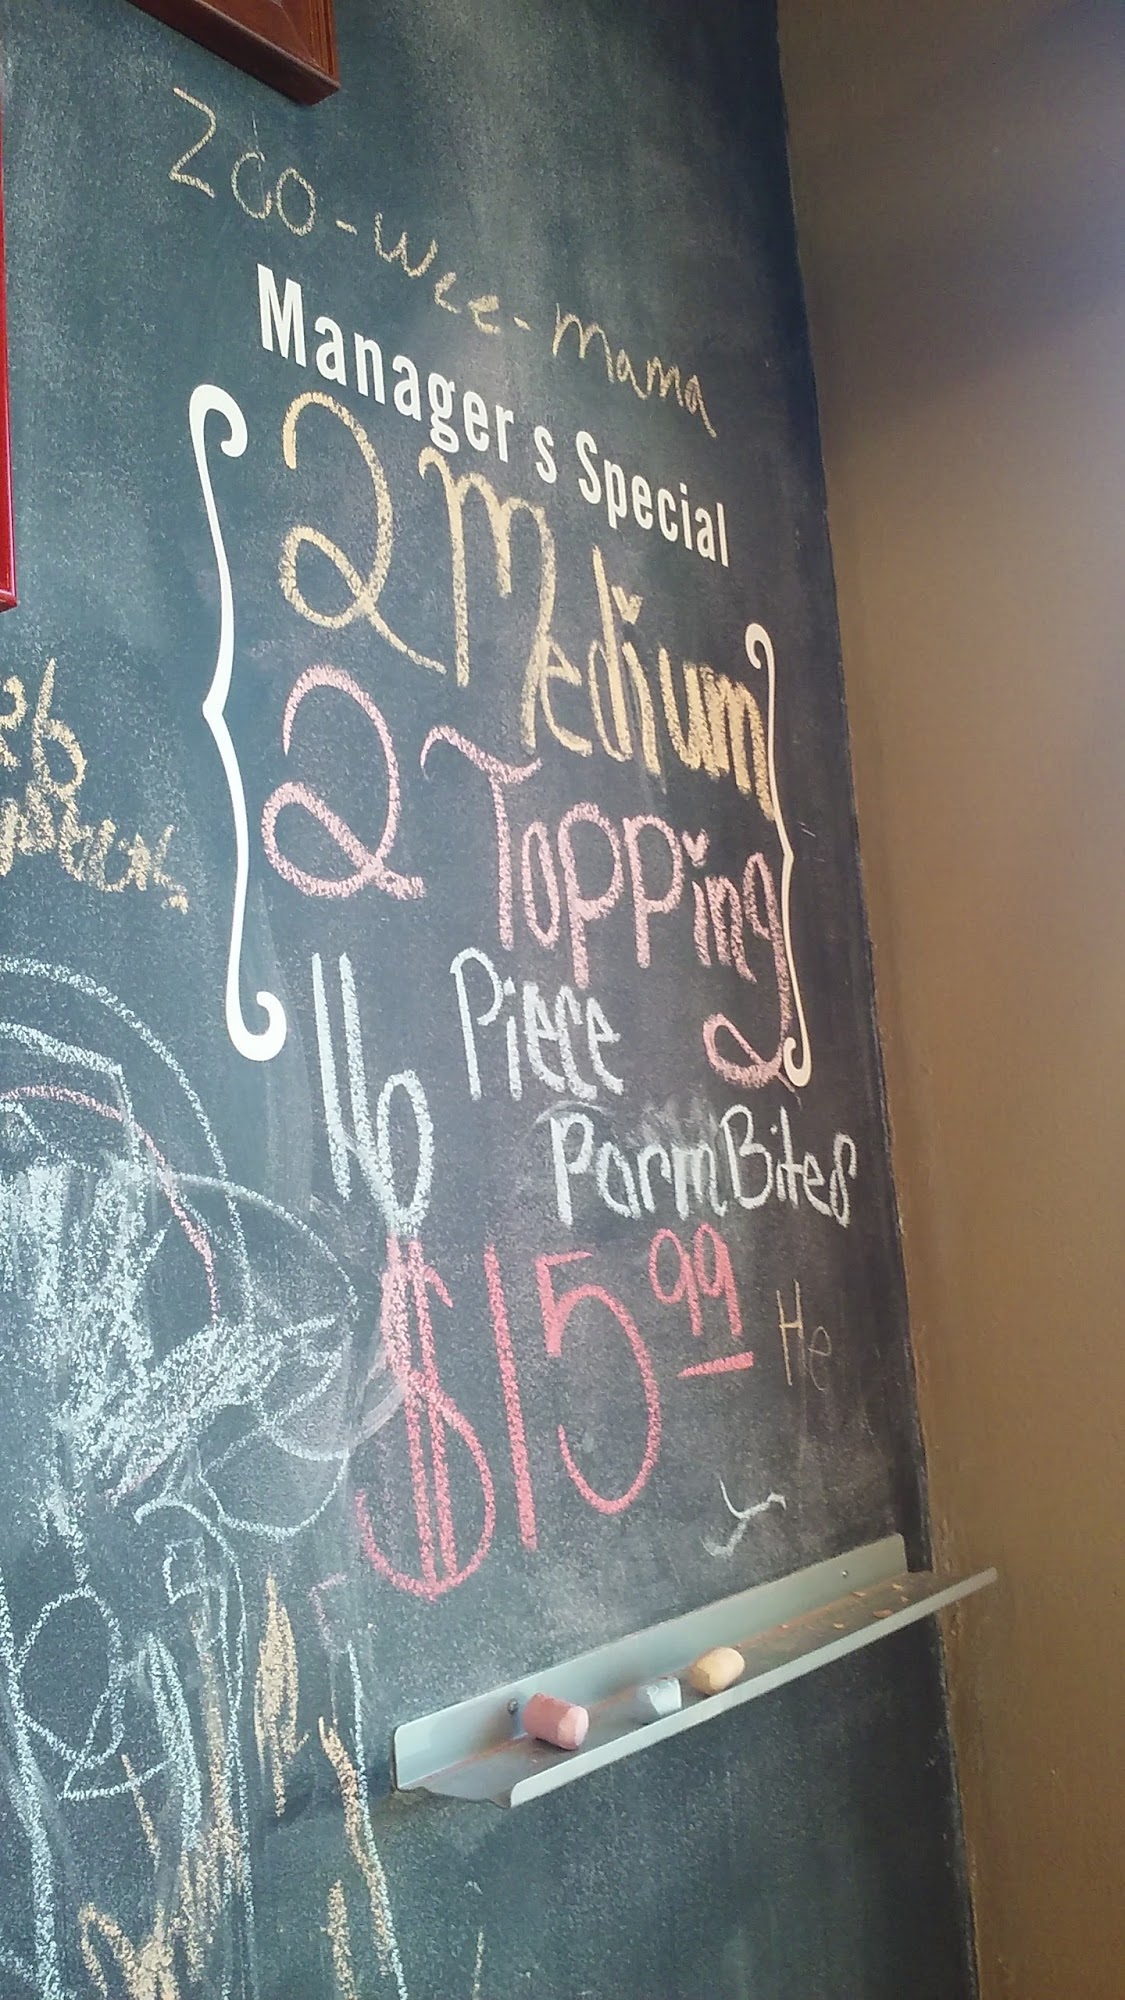 Zoo-wee-mama
Manager s Special
2 Medium
2 Topping
16 Piece
Parm Bites
$15.99
He